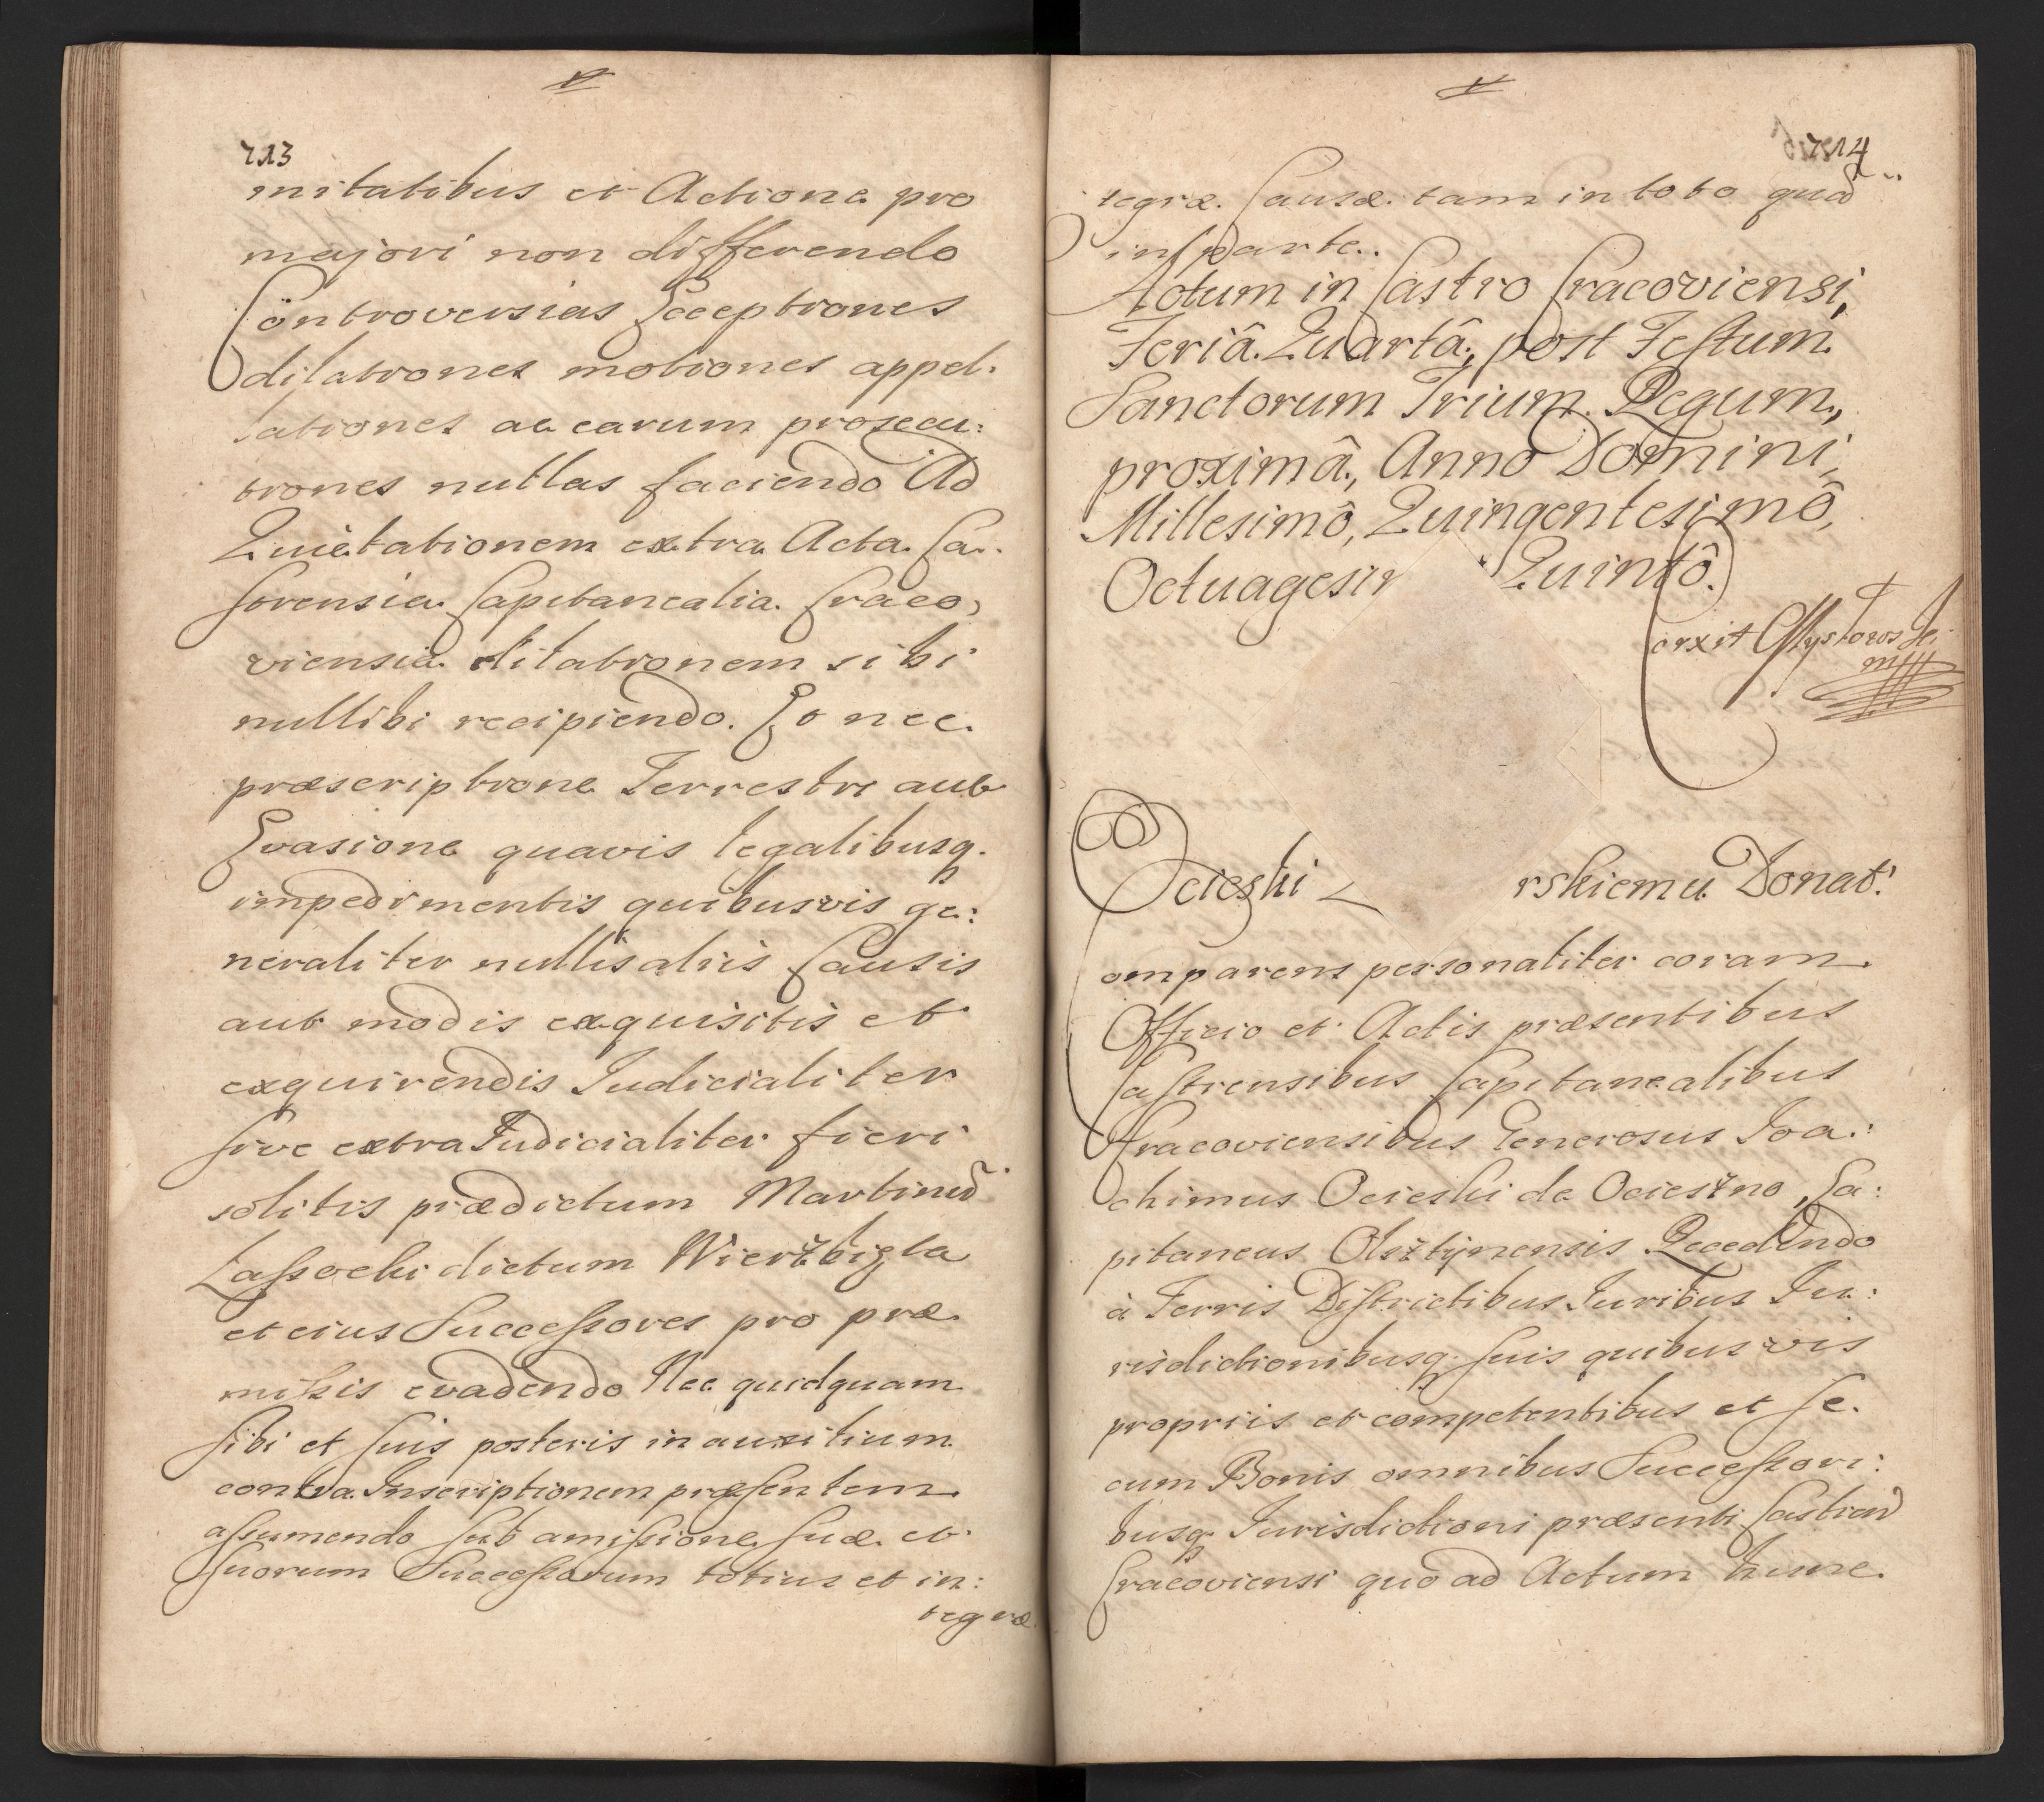 713
mitatibus et Actione pro
majori non differendo
Controversias Exceptiones
dilationes motiones appel:
lationes ac earum prosecu:
tiones nullas faciendo Ad
Quietationem extra Acta Ca:
strensia Capitanealia Craco,
viensia dilationem sibi
nullibi recipiendo. Eo nec
præscriptione Terrestri aut
Evasione quavis legalibusq.
impedimentis quibusvis ge:
neraliter nullis aliis Causis
aut modis exquisitis et
exquirendis Judicialiter
sive extra Judicialiter fieri
solitis prædictum Martinū
Lassocki dictum Wierżbięta
et eius Successores pro præ
missis evadendo Nec quidquam
sibi et suis posteris in auxilium
contra Inscriptionem præsentem
assumendo sub amissione suæ et
suorum Successorum totius et in:
tegræ
714
tegræ Causæ tam in toto quā
in parte..
Actum in Castro Cracoviensi,
Feriâ Quartâ, post Festum
Sanctorum Trium Regum,
proximâ, Anno Domini,
Millesimô, Quingentesimô,
Octuagesi Quintô.
Corxit
Ocieski rskiemu Donat:
Comparens personaliter coram
Officio et Actis præsentibus
Castrensibus Capitanealibus
Cracoviensibus Generosus Joa:
chimus Ocieski de Ociesżno, Ca:
pitaneus Olsztÿnensis Recedendo
à Terris Districtibus Juribus Ju:
risdictionibusq. suis quibusvis
propriis et competentibus et se
cum Bonis omnibus Successori:
busq. Jurisdictioni præsenti Castren
Cracoviensi quo ad Actum hunc